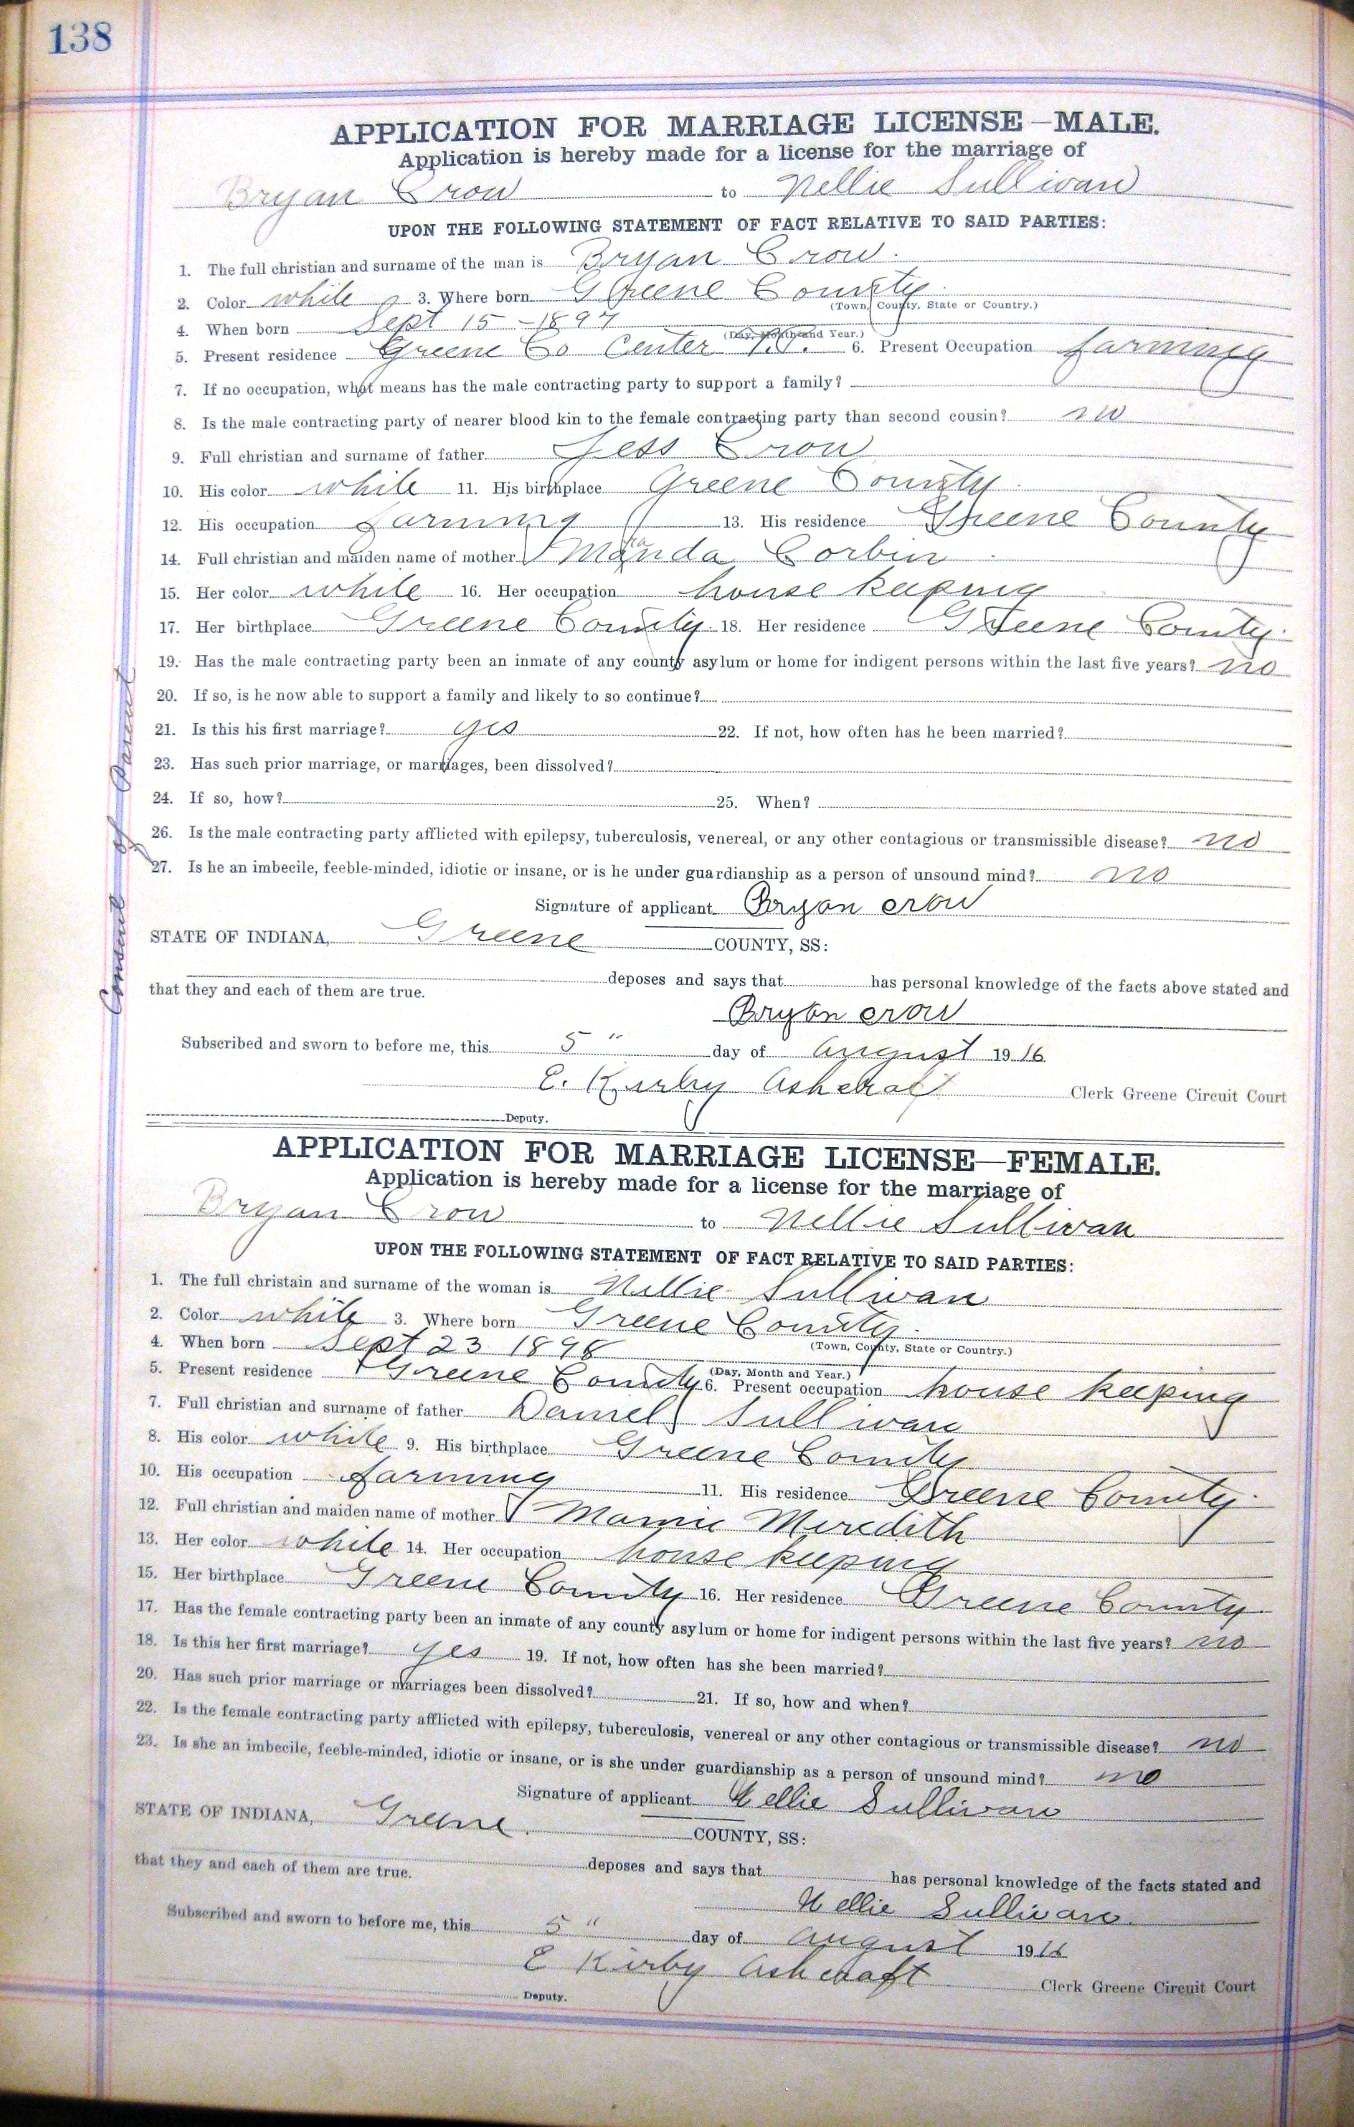 138
APPLICATION FOR MARRIAGE LICENSE—MALE.
Application is hereby made for a license for the marriage of
Bryan Crow to Nellie Sullivan
UPON THE FOLLOWING STATEMENT OF FACT RELATIVE TO SAID PARTIES:
1. The full christian and surname of the man is Bryan Crow.
2. Color white 3. Where born Greene County.
(Town, County, State or Country.)
4. When born Sept 15 - 1897
(Day, Month and Year.)
5. Present residence Greene Co Center T.P. 6. Present Occupation farming
7. If no occupation, what means has the male contracting party to support a family?
8. Is the male contracting party of nearer blood kin to the female contracting party than second cousin? no
9. Full christian and surname of father Jess Crow
10. His color white 11. His birthplace Greene County.
12. His occupation farming 13. His residence Greene County
14. Full christian and maiden name of mother Manda Corbin
15. Her color white 16. Her occupation house keeping
17. Her birthplace Greene County. 18. Her residence Greene County.
19. Has the male contracting party been an inmate of any county asylum or home for indigent persons within the last five years? no
20. If so, is he now able to support a family and likely to so continue?
21. Is this his first marriage? yes 22. If not, how often has he been married?
23. Has such prior marriage, or marriages, been dissolved?
24. If so, how? 25. When?
26. Is the male contracting party afflicted with epilepsy, tuberculosis, venereal, or any other contagious or transmissible disease? no
27. Is he an imbecile, feeble-minded, idiotic or insane, or is he under guardianship as a person of unsound mind? no
Consent of Parent
Signature of applicant Bryan Crow
STATE OF INDIANA, Greene COUNTY, SS:
deposes and says that has personal knowledge of the facts above stated and
that they and each of them are true.
Bryan Crow
Subscribed and sworn to before me, this 5 " day of August 1916
E. Kirby Ashcraft Clerk Greene Circuit Court
Deputy.
APPLICATION FOR MARRIAGE LICENSE—FEMALE.
Application is hereby made for a license for the marriage of
Bryan Crow to Nellie Sullivan
UPON THE FOLLOWING STATEMENT OF FACT RELATIVE TO SAID PARTIES:
1. The full christain and surname of the woman is Nellie Sullivan
2. Color white 3. Where born Greene County.
(Town, County, State or Country.)
4. When born Sept 23 1898
(Day, Month and Year.)
5. Present residence Greene County 6. Present occupation house keeping
7. Full christian and surname of father Daniel Sullivan
8. His color white 9. His birthplace Greene County
10. His occupation farming 11. His residence Greene County.
12. Full christian and maiden name of mother Mamie Meredith
13. Her color white 14. Her occupation house keeping
15. Her birthplace Greene County 16. Her residence Greene County
17. Has the female contracting party been an inmate of any county asylum or home for indigent persons within the last five years? no
18. Is this her first marriage? yes 19. If not, how often has she been married?
20. Has such prior marriage or marriages been dissolved? 21. If so, how and when?
22. Is the female contracting party afflicted with epilepsy, tuberculosis, venereal or any other contagious or transmissible disease? no
23. Is she an imbecile, feeble-minded, idiotic or insane, or is she under guardianship as a person of unsound mind? no
Signature of applicant Nellie Sullivan
STATE OF INDIANA, Greene. COUNTY, SS:
deposes and says that has personal knowledge of the facts stated and
that they and each of them are true.
Nellie Sullivan.
Subscribed and sworn to before me, this 5 " day of August 1916
E Kirby Ashcraft Clerk Greene Circuit Court
Deputy.